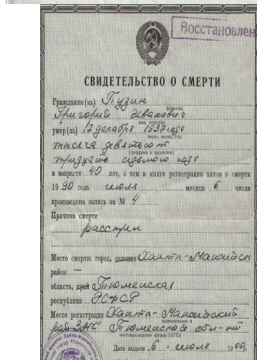 Восстановлен
СВИДЕТЕЛЬСТВО О СМЕРТИ
Гражданин(ка) Пузин
Григорий Иванович
умер(ла) 17 декабря 1937 года
тысяча девятьсот
тридцать седьмого года
в возрасте 40 лет, о чем в книге регистрации актов о смерти
1990 года июля месяца 6 числа
произведена запись за № 4
Причина смерти
расстрел
Место смерти: город, селение Ханты-Мансийск
район —
область, край Тюменская
республика РСФСР
Место регистрации Ханты-Мансийский
Тюменской обл-ти
Дата выдачи 6 июля